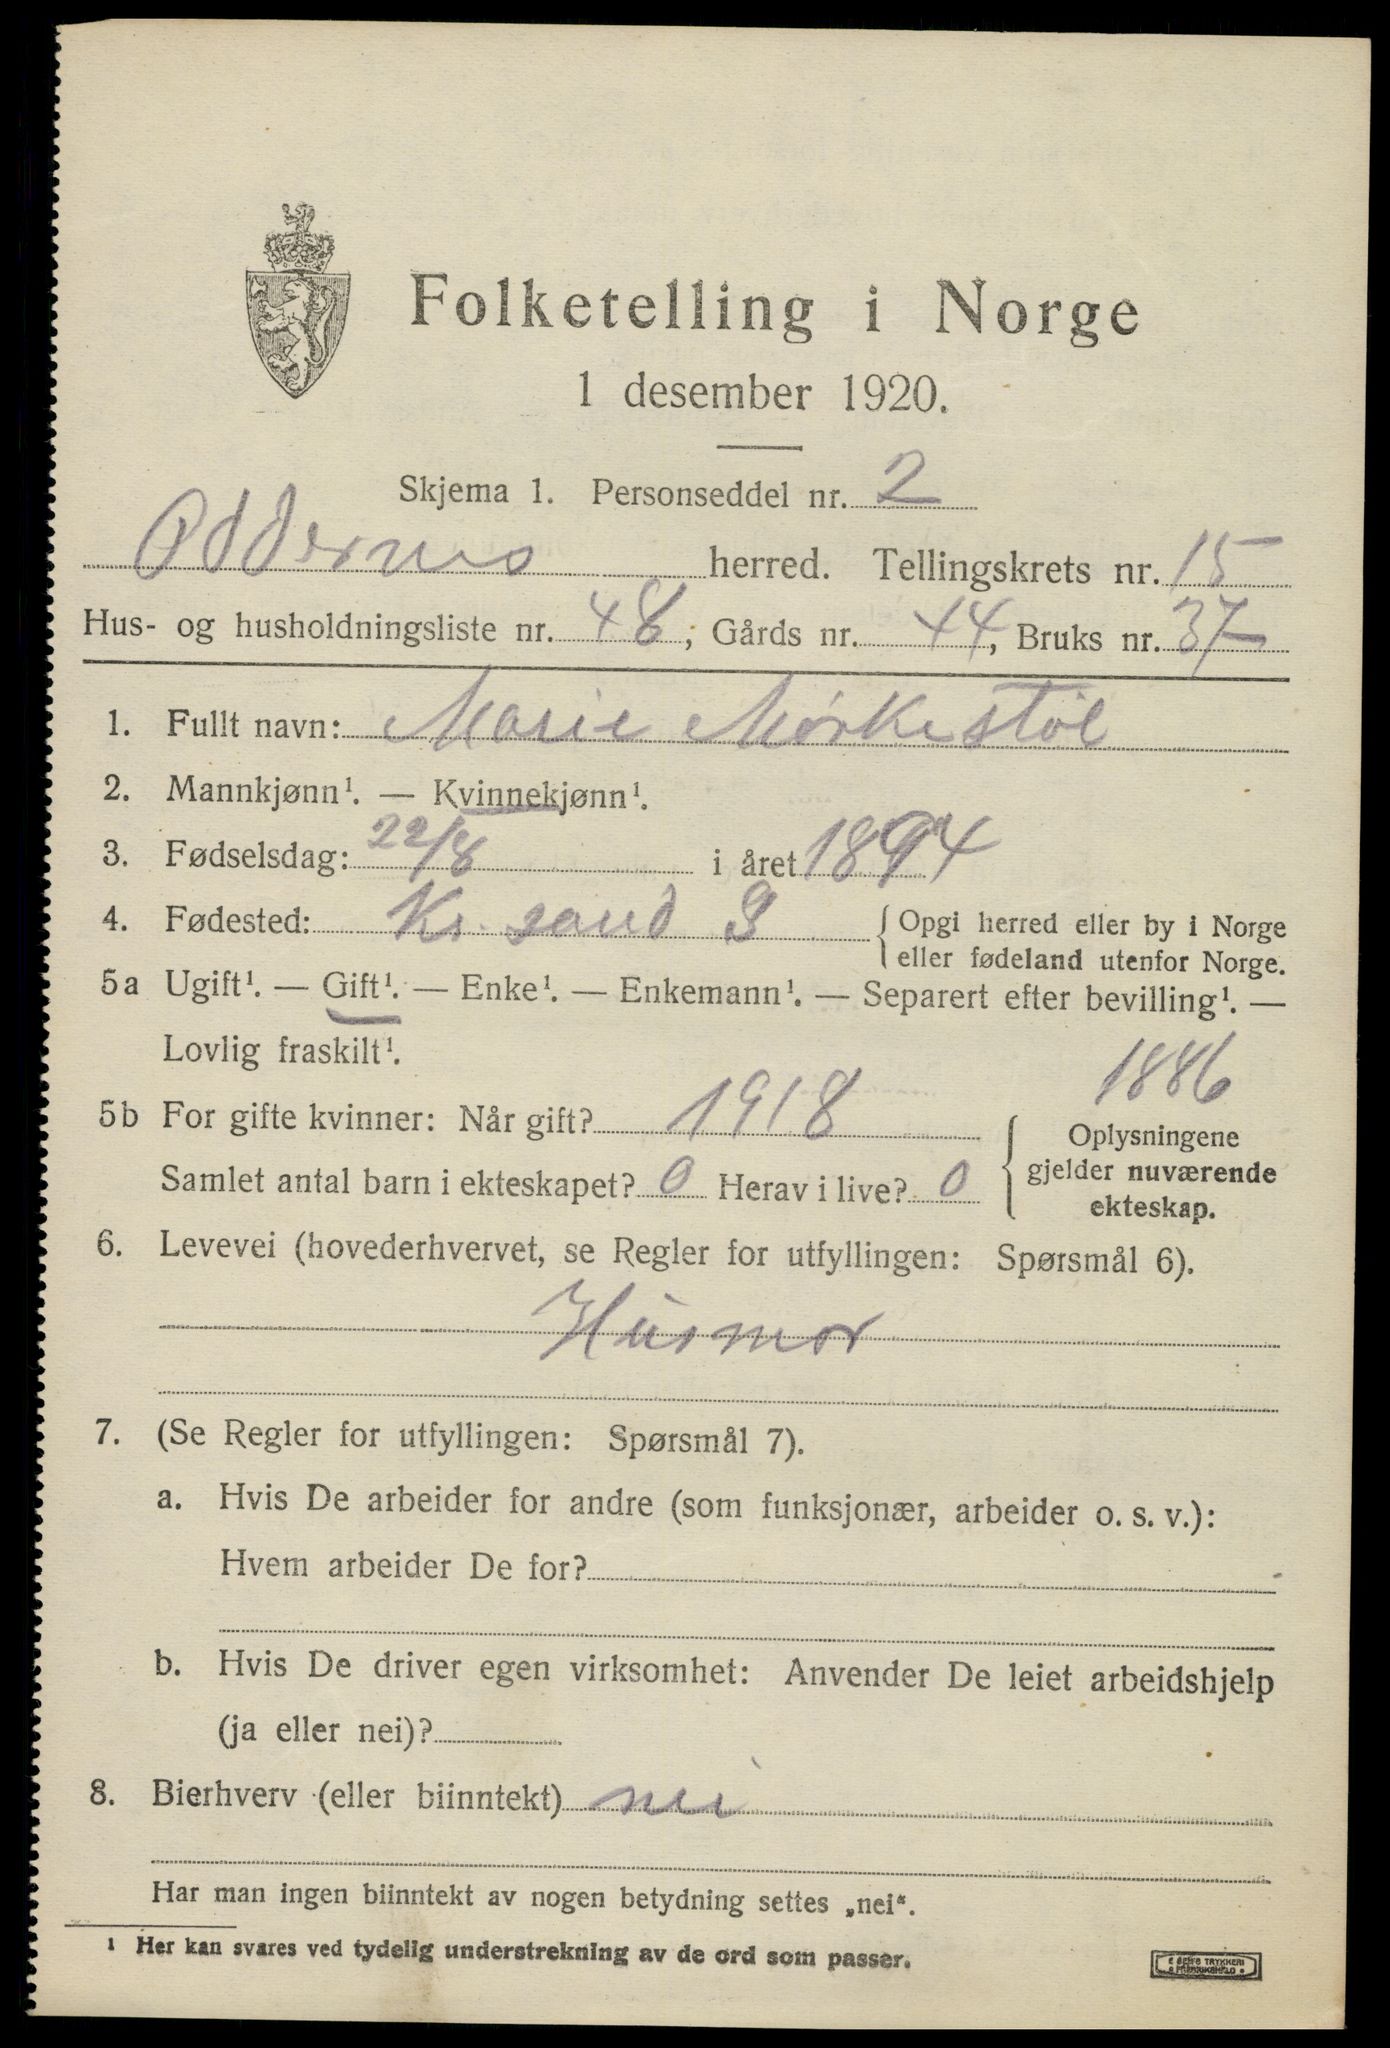 Folketelling i Norge
1 desember 1920.
Skjema 1. Personseddel nr. 2
Oddernes herred. Tellingskrets nr. 15
Hus- og husholdningsliste nr. 48, Gårds nr. 44, Bruks nr. 37
1. Fullt navn: Marie Mørkestøl
2. Mannkjønn¹. — Kvinnekjønn¹.
3. Fødselsdag: 22/8 i året 1894
4. Fødested: Kr. sand S { Opgi herred eller by i Norge
eller fødeland utenfor Norge.
5a Ugift¹. — Gift¹. — Enke¹. — Enkemann¹. — Separert efter bevilling¹. —
Lovlig fraskilt¹.
1886
5b For gifte kvinner: Når gift? 1918
Samlet antal barn i ekteskapet? 0 Herav i live? 0
{ Oplysningene
gjelder nuværende
ekteskap.
6. Levevei (hovederhvervet, se Regler for utfyllingen: Spørsmål 6).
Husmor
7. (Se Regler for utfyllingen: Spørsmål 7).
a. Hvis De arbeider for andre (som funksjonær, arbeider o. s. v.):
Hvem arbeider De for?
b. Hvis De driver egen virksomhet: Anvender De leiet arbeidshjelp
(ja eller nei)?
8. Bierhverv (eller biinntekt) nei
Har man ingen biinntekt av nogen betydning settes „nei“.
¹ Her kan svares ved tydelig understrekning av de ord som passer.